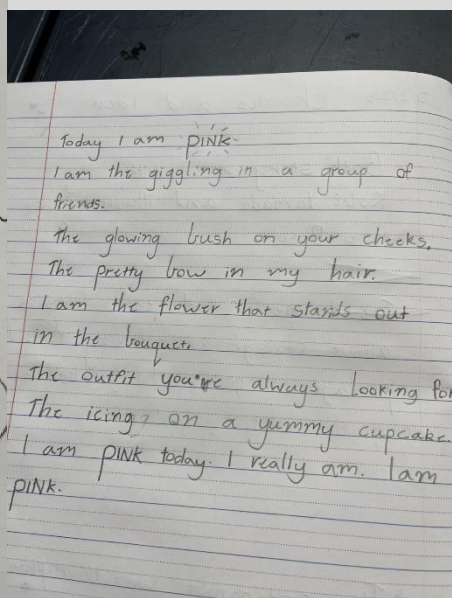 Today I am PINK.
I am the giggling in a group of
friends.
The glowing bush on your cheeks.
The pretty bow in my hair.
I am the flower that stands out
in the bouquet.
The outfit you're always looking for
The icing on a yummy cupcake.
I am PINK today. I really am. I am
PINK.